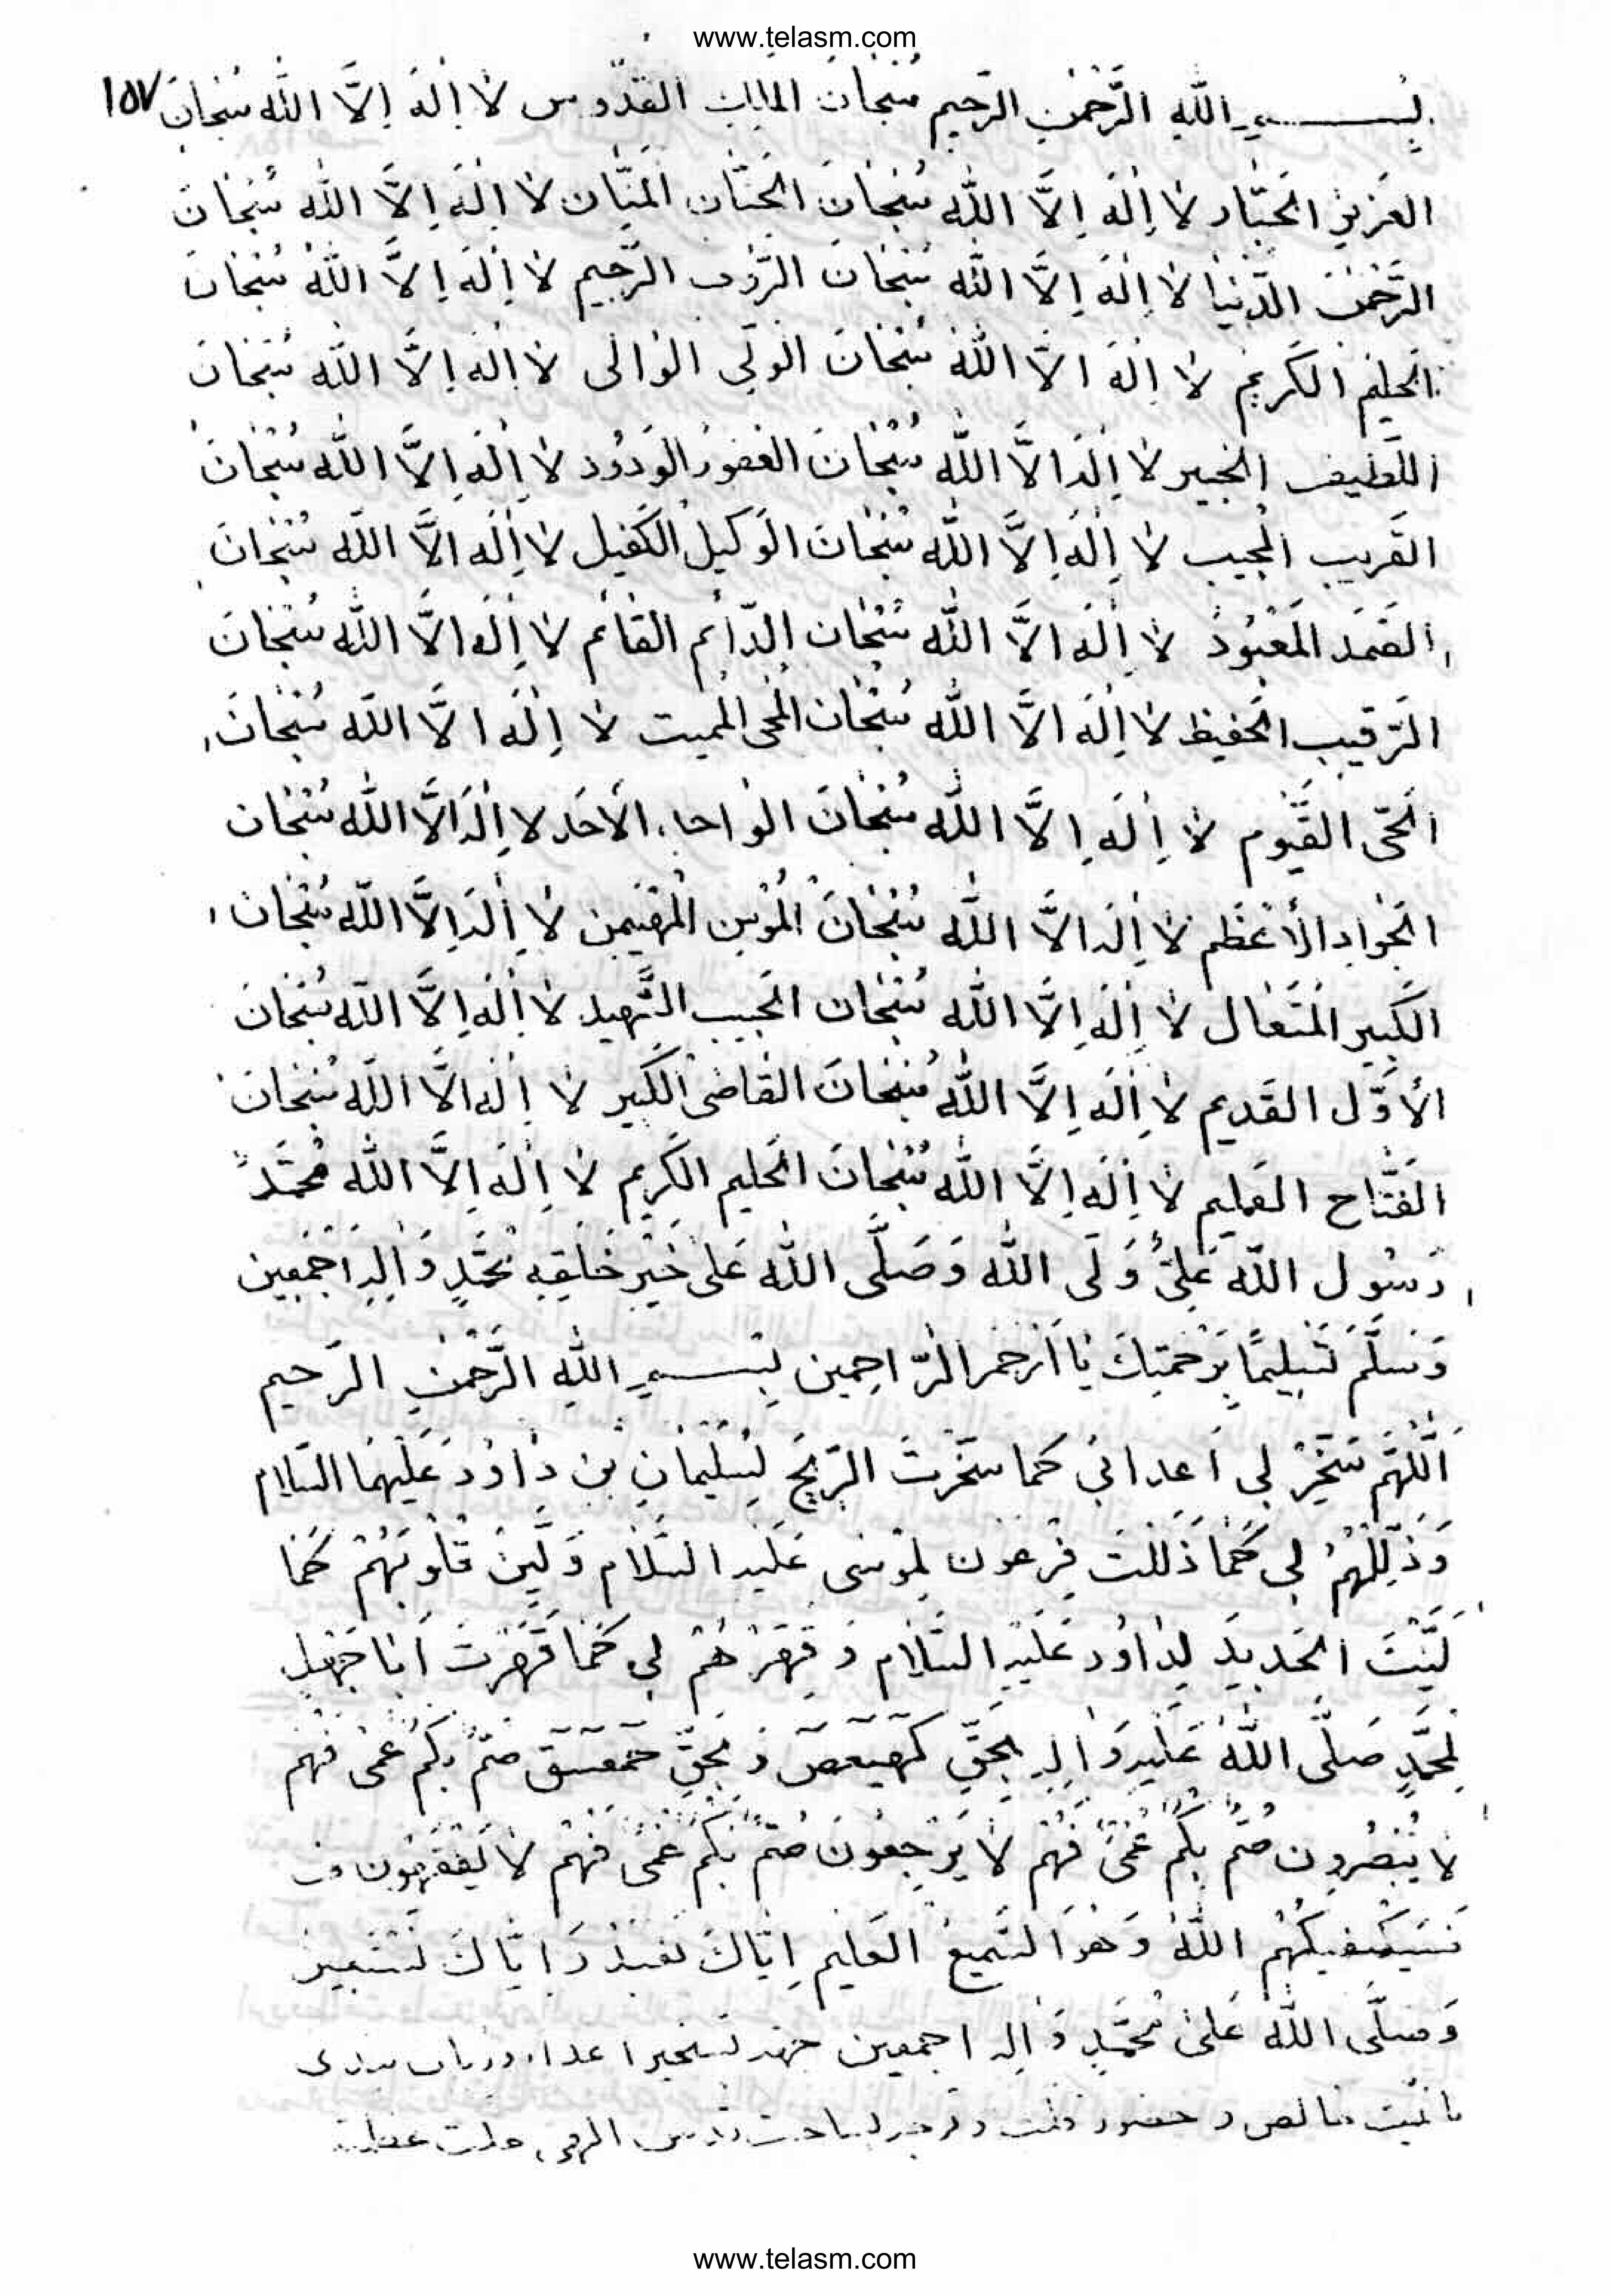 www.telasm.com
بِسْمِ اللهِ الرَّحْمٰنِ الرَّحيم سُبْحٰانَ المَلِكِ القُدّوس لٰا اِلٰهَ اِلاَّ اللّٰه سُبْحٰانَ ١٥٧
العَزيزِ الجَبّٰار لٰا اِلٰهَ اِلاَّ اللّٰه سُبْحٰانَ الحَنّٰان المَنّٰان لٰا اِلٰهَ اِلاَّ اللّٰه سُبْحٰانَ
الرَّحْمٰن الدّنيٰا لٰا اِلٰهَ اِلاَّ اللّٰه سُبْحٰانَ الرَّؤف الرَّحيم لٰا اِلٰهَ اِلاَّ اللّٰهُ سُبْحٰانَ
الحَليم الكَريم لٰا اِلٰهَ الاَّ اللّٰهُ سُبْحٰانَ الوَلّي الوٰالى لٰا اِلٰهَ اِلاَّ اللّٰه سُبْحٰانَ
اللَّطيف الخَبير لٰا اِلٰهَ الاَّ اللّٰه سُبْحٰانَ الغَفورُ الوَدوُد لٰا اِلٰهَ اِلاَّ اللّٰه سُبْحٰانَ
القَريب المُجيب لٰا اِلٰهَ اِلاَّ اللّٰه سُبْحٰانَ الوَكيلُ الكَفيل لٰا اِلٰهَ الاَّ اللّٰه سُبْحٰانَ
الصَمَد المَعْبُودُ لٰا اِلٰهَ الاَّ اللّٰه سُبْحٰان الدّٰائم القٰائم لٰا اِلٰهَ الاَّ اللّٰه سُبْحٰانَ
الرَّقيب الحَفيظ لٰا اِلٰهَ الاَّ اللّٰه سُبْحٰان المُحى المُميت لٰا اِلٰهَ الاَّ اللّٰه سُبْحٰانَ
الحَىّ القَيّوُم لٰا اِلٰهَ اِلاَّ اللّٰه سُبْحٰانَ الوٰاحد الاَحَد لا اِلٰهَ الاَّ اللّٰه سُبْحٰان
الجَوٰاد الأعْظَم لٰا اِلٰهَ الاَّ اللّٰه سُبْحٰانَ المُؤْمِن المُهَيْمِن لٰا اِلٰهَ اِلاَّ اللّٰه سُبْحٰان
الكَبير المُتَعٰال لٰا اِلٰهَ اِلاَّ اللّٰه سُبْحٰان الحَبيب الشَّهيد لٰا اِلٰهَ اِلاَّ اللّٰه سُبْحٰانَ
الأوَّل القَديم لٰا اِلٰهَ اِلاَّ اللّٰه سُبْحٰانَ القٰاضىُ الكَبير لٰا اِلٰهَ الاَّ اللّٰه سُبْحٰانَ
الفَتّٰاح العَليم لٰا اِلٰهَ اِلاَّ اللّٰه سُبْحٰانَ الحَليم الكَريم لٰا اِلٰهَ اِلاَّ اللّٰه مُحَمَّدٌ
رَسُول اللّٰه عَلِىٌّ وَلى اللّٰه وَصَلَّى اللّٰه عَلىٰ خَيْرِ خَلقِهِ مُحَمَّدٍ وَاٰلِهِ اَجْمَعين
وَسَلَّمَ تَسليمًا بِرَحْمَتِكَ يٰا اَرْحَمَ الرّٰاحِمين بِسْمِ اللهِ الرَّحْمٰنِ الرَّحيم
اَللّٰهُمَّ سَخِّرْ لى اَعدائى كَما سَخَّرْتَ الرّيحَ لِسُلَيْمٰانِ بْن دٰاوُدَ عَلَيْهِمَا السّلام
وَذَلِّلْهُمْ لى كَمٰا ذَلَّلتَ فِرْعَون لِمُوسى عَلَيه السَّلٰام وَلَيِّنْ قُلُوبَهُمْ كَمٰا
لَيَّنْتَ الحَديدَ لِدٰاوُدَ عَلَيْهِ السَّلٰام وَقَهِّرْهُمْ لى كَمٰا قَهَّرْتَ اَبٰا جَهْلٍ
لِمُحَمَّدٍ صَلَّى اللّٰهُ عَلَيْهِ وَاٰلِه بِحَقِّ كٓهٰيٰعٓصٓ وَبِحَقِّ حٰمٓعٓسٓقٓ صُمٌّ بُكْمٌ عُمْىٌ فَهُمْ
لٰا يُبْصِرُون صُمٌّ بُكْمٌ عُمْىٌ فَهُمْ لٰا يَرْجِعوُنَ صُمٌّ بُكْمٌ عُمْىٌ فَهُمْ لٰا يَفْقَهُون
فَسَيَكْفيكَهُمْ اللّٰهُ وَهُوَ السَّميعُ العَليم اِيّٰاكَ نَعْبُدُ وَاِيّٰاكَ نَسْتَعين
وَصَلَّى اللّٰه عَلىٰ مُحَمَّدٍ وَاٰلِه اجمعين جهة تسخير اعداء وزبان بندى
با نيّت خالص و حضور قلب و توجه
www.telasm.com